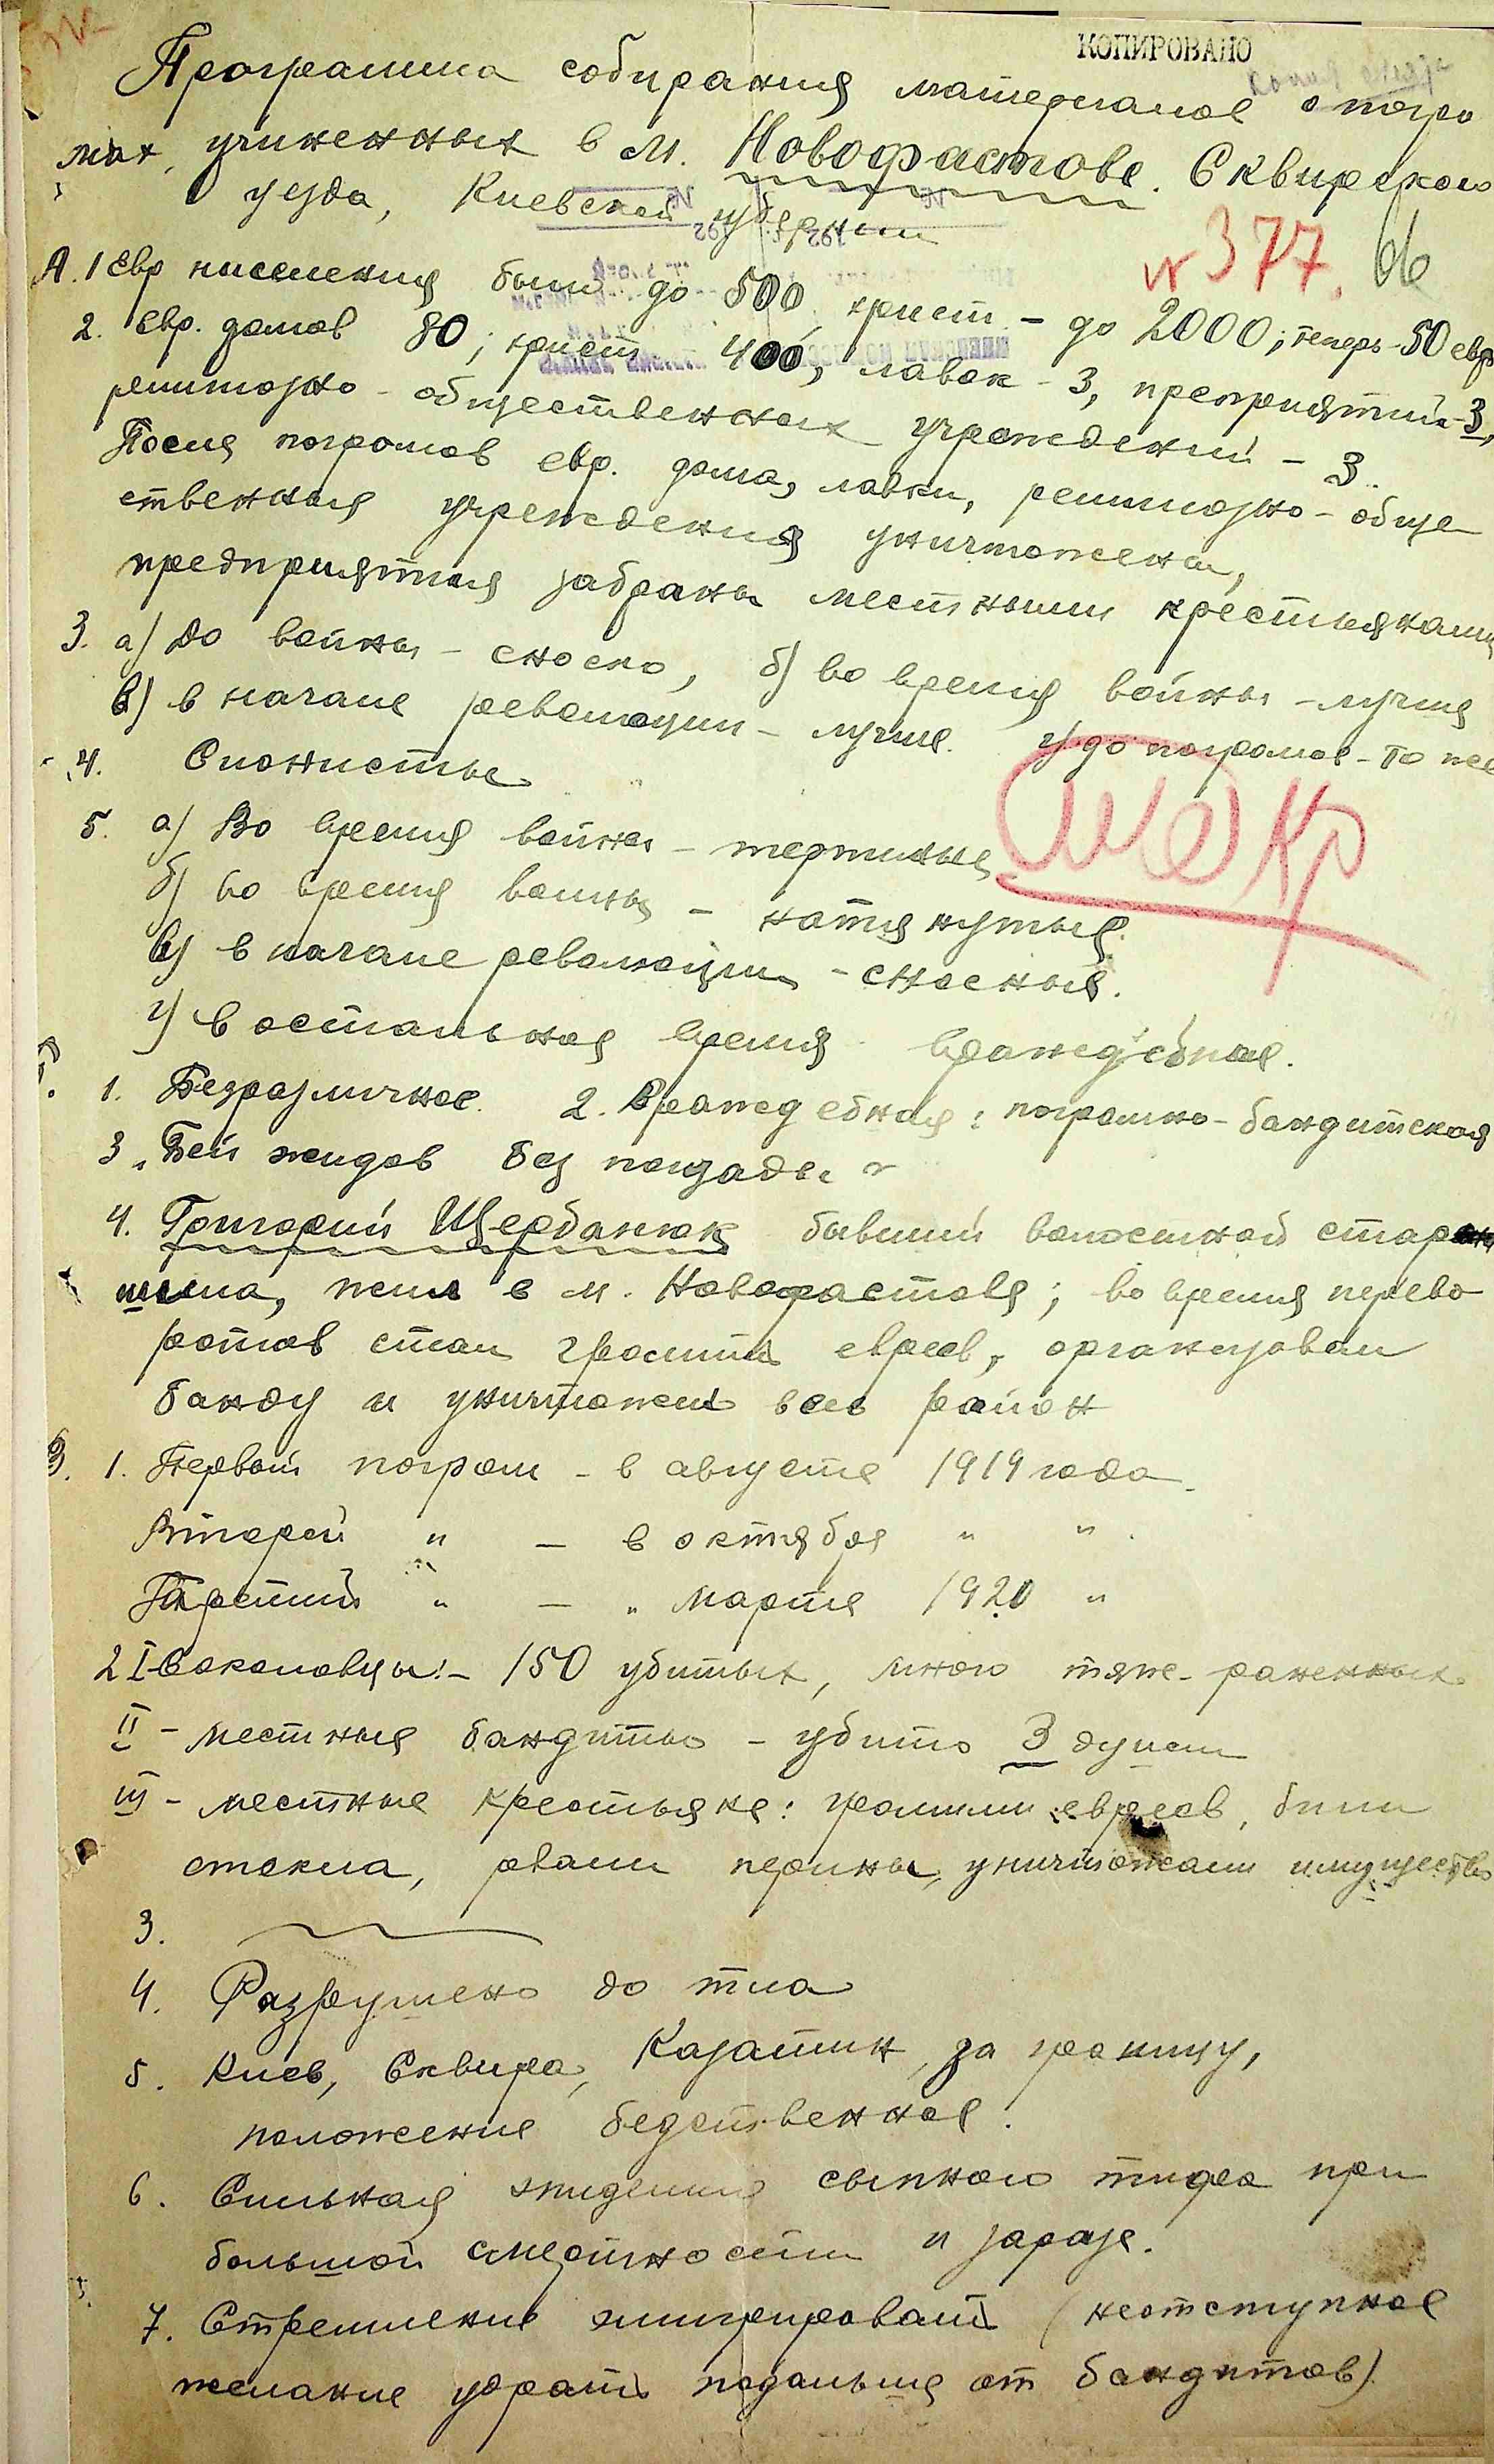 КОПИРОВАНО
Программа собирания материалов о погро
мах, учиненных в м. Новофастове. Сквирского
уезда, Киевской губернии
№ 377.
А. 1 Евр населения было до 500, христ. - до 2000; теперь - 50 евр
2. Евр. домов 80; христ 400, лавок - 3, преприятий - 3,
религиозно - общественных учреждений - 3.
После погромов евр. дома, лавки, религиозно - обще
ственныя учреждения уничтожены,
предприятия забраны местными крестьянами
3. а) До войны - сносно, б) во время войны - лучше
в) в начале революции - лучше. г) до погромов - то же
4. Сионисты
5. а) Во время войны - терпимые
б) во время войны - натянутые.
в) в начале революции - сносные.
г) в остальное время враждебные.
1. Безразличное. 2. Враждебная: погромно - бандитская
3. Бей жидов без пощады
4. Григорий Щербанюк бывший волостной стар
шина, жил в м. Новофастове; во время перево
ротов стал громить евреев, организовал
банду и уничтожил весь район
В. 1. Первый погром - в августе 1919 года.
Второй " - в октябре " ".
Третий " - " марте 1920 "
2 I - Соколовцы: - 150 убитых, много тяже - раненных.
II - местные бандиты - убито 3 душ
III - местные крестьяне: громили евреев, били
стекла, рвали перины, уничтожали имущество
3.
4. Разрушено до тла
5. Киев, Сквира, Казатин, за границу,
положение бедственное.
6. Сильная эпидемия сыпного тифа при
большой смертности и заразе.
7. Стремление эмигрировать (неотступное
желание убрать подальше от бандитов).